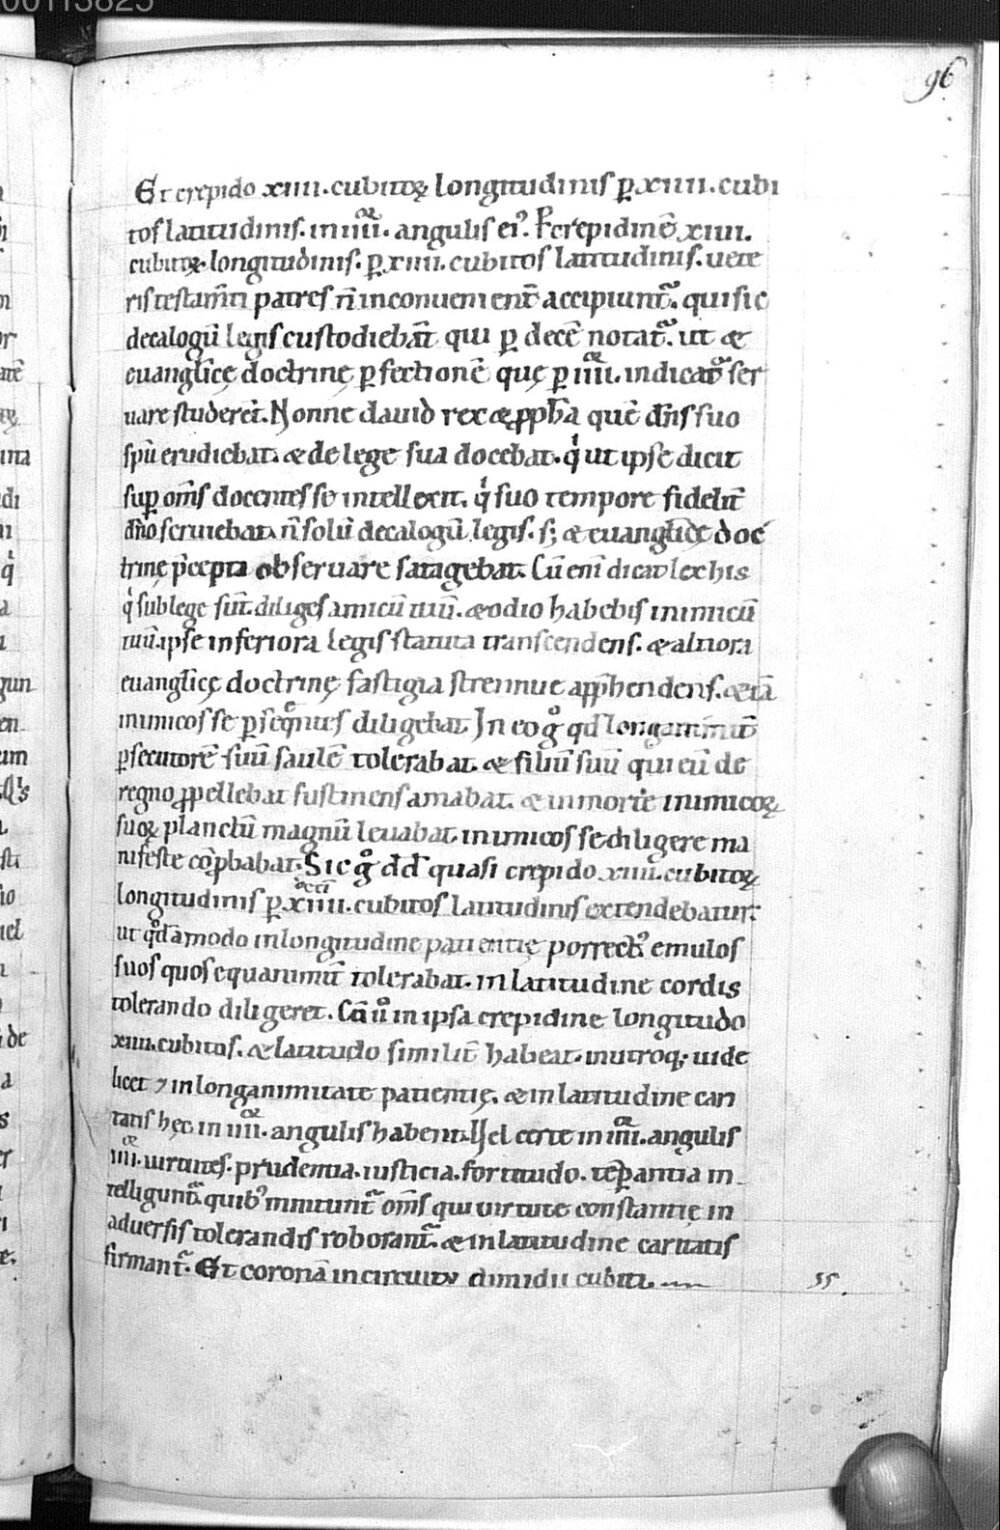 00113825
96
Et crepido xiiii. cubitoꝝ longitudinis ꝑ xiiii. cubi
tos latitudinis. in iiii. angulis eiꝰ. P crepidinē xiiii.
cubitoꝝ. longitudinis. ꝑ xiiii. cubitos latitudinis. uete
ris testam̄ti patres n̄ inconuenient̄ accipiunt᷑. qui sic
decalogū legis custodiebant̄ qui ꝑ decē notat᷑. ut &
euangl̄icę doctrinę ꝑfectionē quę ꝑ iiii. indicat᷑ ser
uare studeret. Nonne dauid rex & ꝓph̄a quē dn̄s suo
spū erudiebat. & de lege sua docebat. qͥ ut ipse dicit
suꝑ om̄s docentes se intellexit. qͥ suo tempore fidelit̄
dn̄o seruiebat. n̄ solū decalogū legis. s; & euangl̄icę doc
trinę p̄cepta obseruare satagebat. Cū enī dicat lex his
qͥ sub lege sūt. diliges amicū tuū. & odio habebis inimicū
tuū. ipse inferiora legis statuta transcendens. & altiora
euangl̄icę doctrinę fastigia strennue app̄hendens. & iā
inimicos se ꝑseq̄ntes diligebat. In eo gͦ qd̄ longanimit̄
ꝑsecutorē suū saulē tolerabat. & filiū suū qui eū de
regno ꝓpellebat sustinens amabat. & in morte inimicoꝝ
suoꝝ planctū magnū leuabat. inimicos se diligere ma
nifeste cōꝓbabat. Sic gͦ dd̄ quasi crepido xiiii. cubitoꝝ
longitudinis ꝑ xiiii. cubitos latitudinis extendebatur.
ut qd̄āmodo in longitudine patientię porrectꝰ emulos
suos quos equanimit̄ tolerabat. in latitudine cordis
tolerando diligeret. Cū uͦ in ipsa crepidine longitudo
xiiii. cubitos. & latitudo similit̄ habeat. in utroq; uide
licet ⁊ in longanimitate patientię. & in latitudine cari
tatis hęc in iiii. angulis habent. Uel certe in iiii. angulis
iiii. uirtutes. prudentia. iusticia. fortitudo. tēꝑantia in
telligunt᷑. quibꝰ innitunt᷑ om̄s qui uirtute constantię in
aduersis tolerandis roborant᷑. & in latitudine caritatis
firmant᷑. Et coronā in circuitu dimidii cubiti.
55.